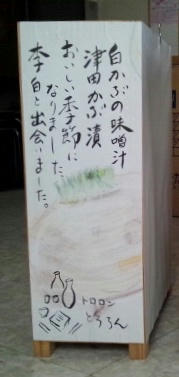 白かぶの味噌汁
津田かぶ漬
おいしい季節に
なりました。
李白と出会いました。
トロロン
とろろん